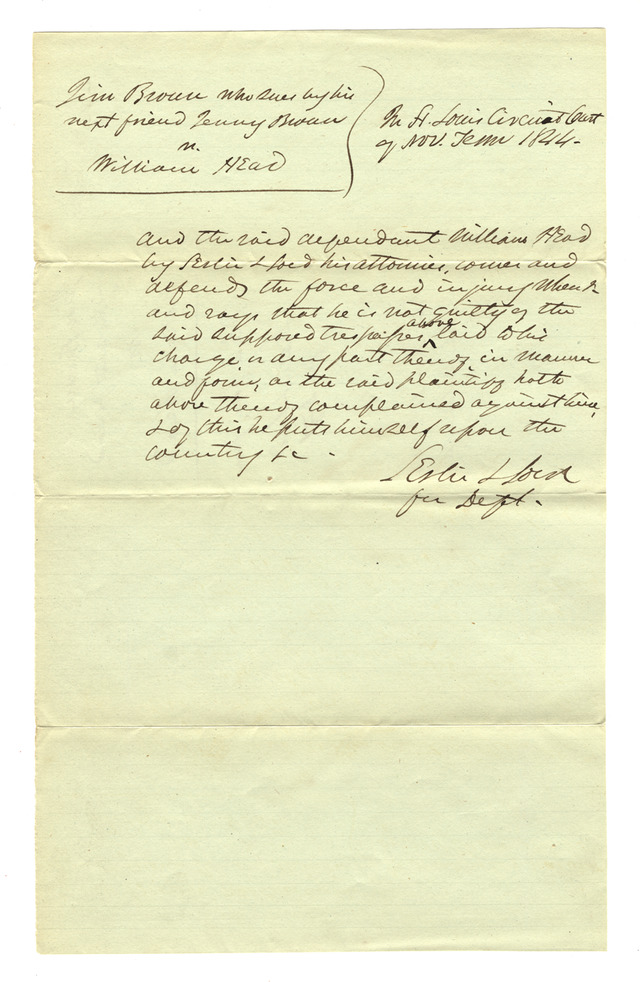 Jim Brown who sues by his
next friend Jenny Brown
v.
William Head
In St. Louis Circuit Court
of Nov. Term 1844.
and the said defendant William Head
by Leslie & Lord his attornies, comes and
defends the force and injury when &
and says that he is not guilty of the
said supposed trespasses above laid to his
charge, or any part thereof in manner
and form, as the said plaintiff hath
above thereof complained against him,
& of this he puts himself upon the
country &c.
Leslie & Lord
for Deft.